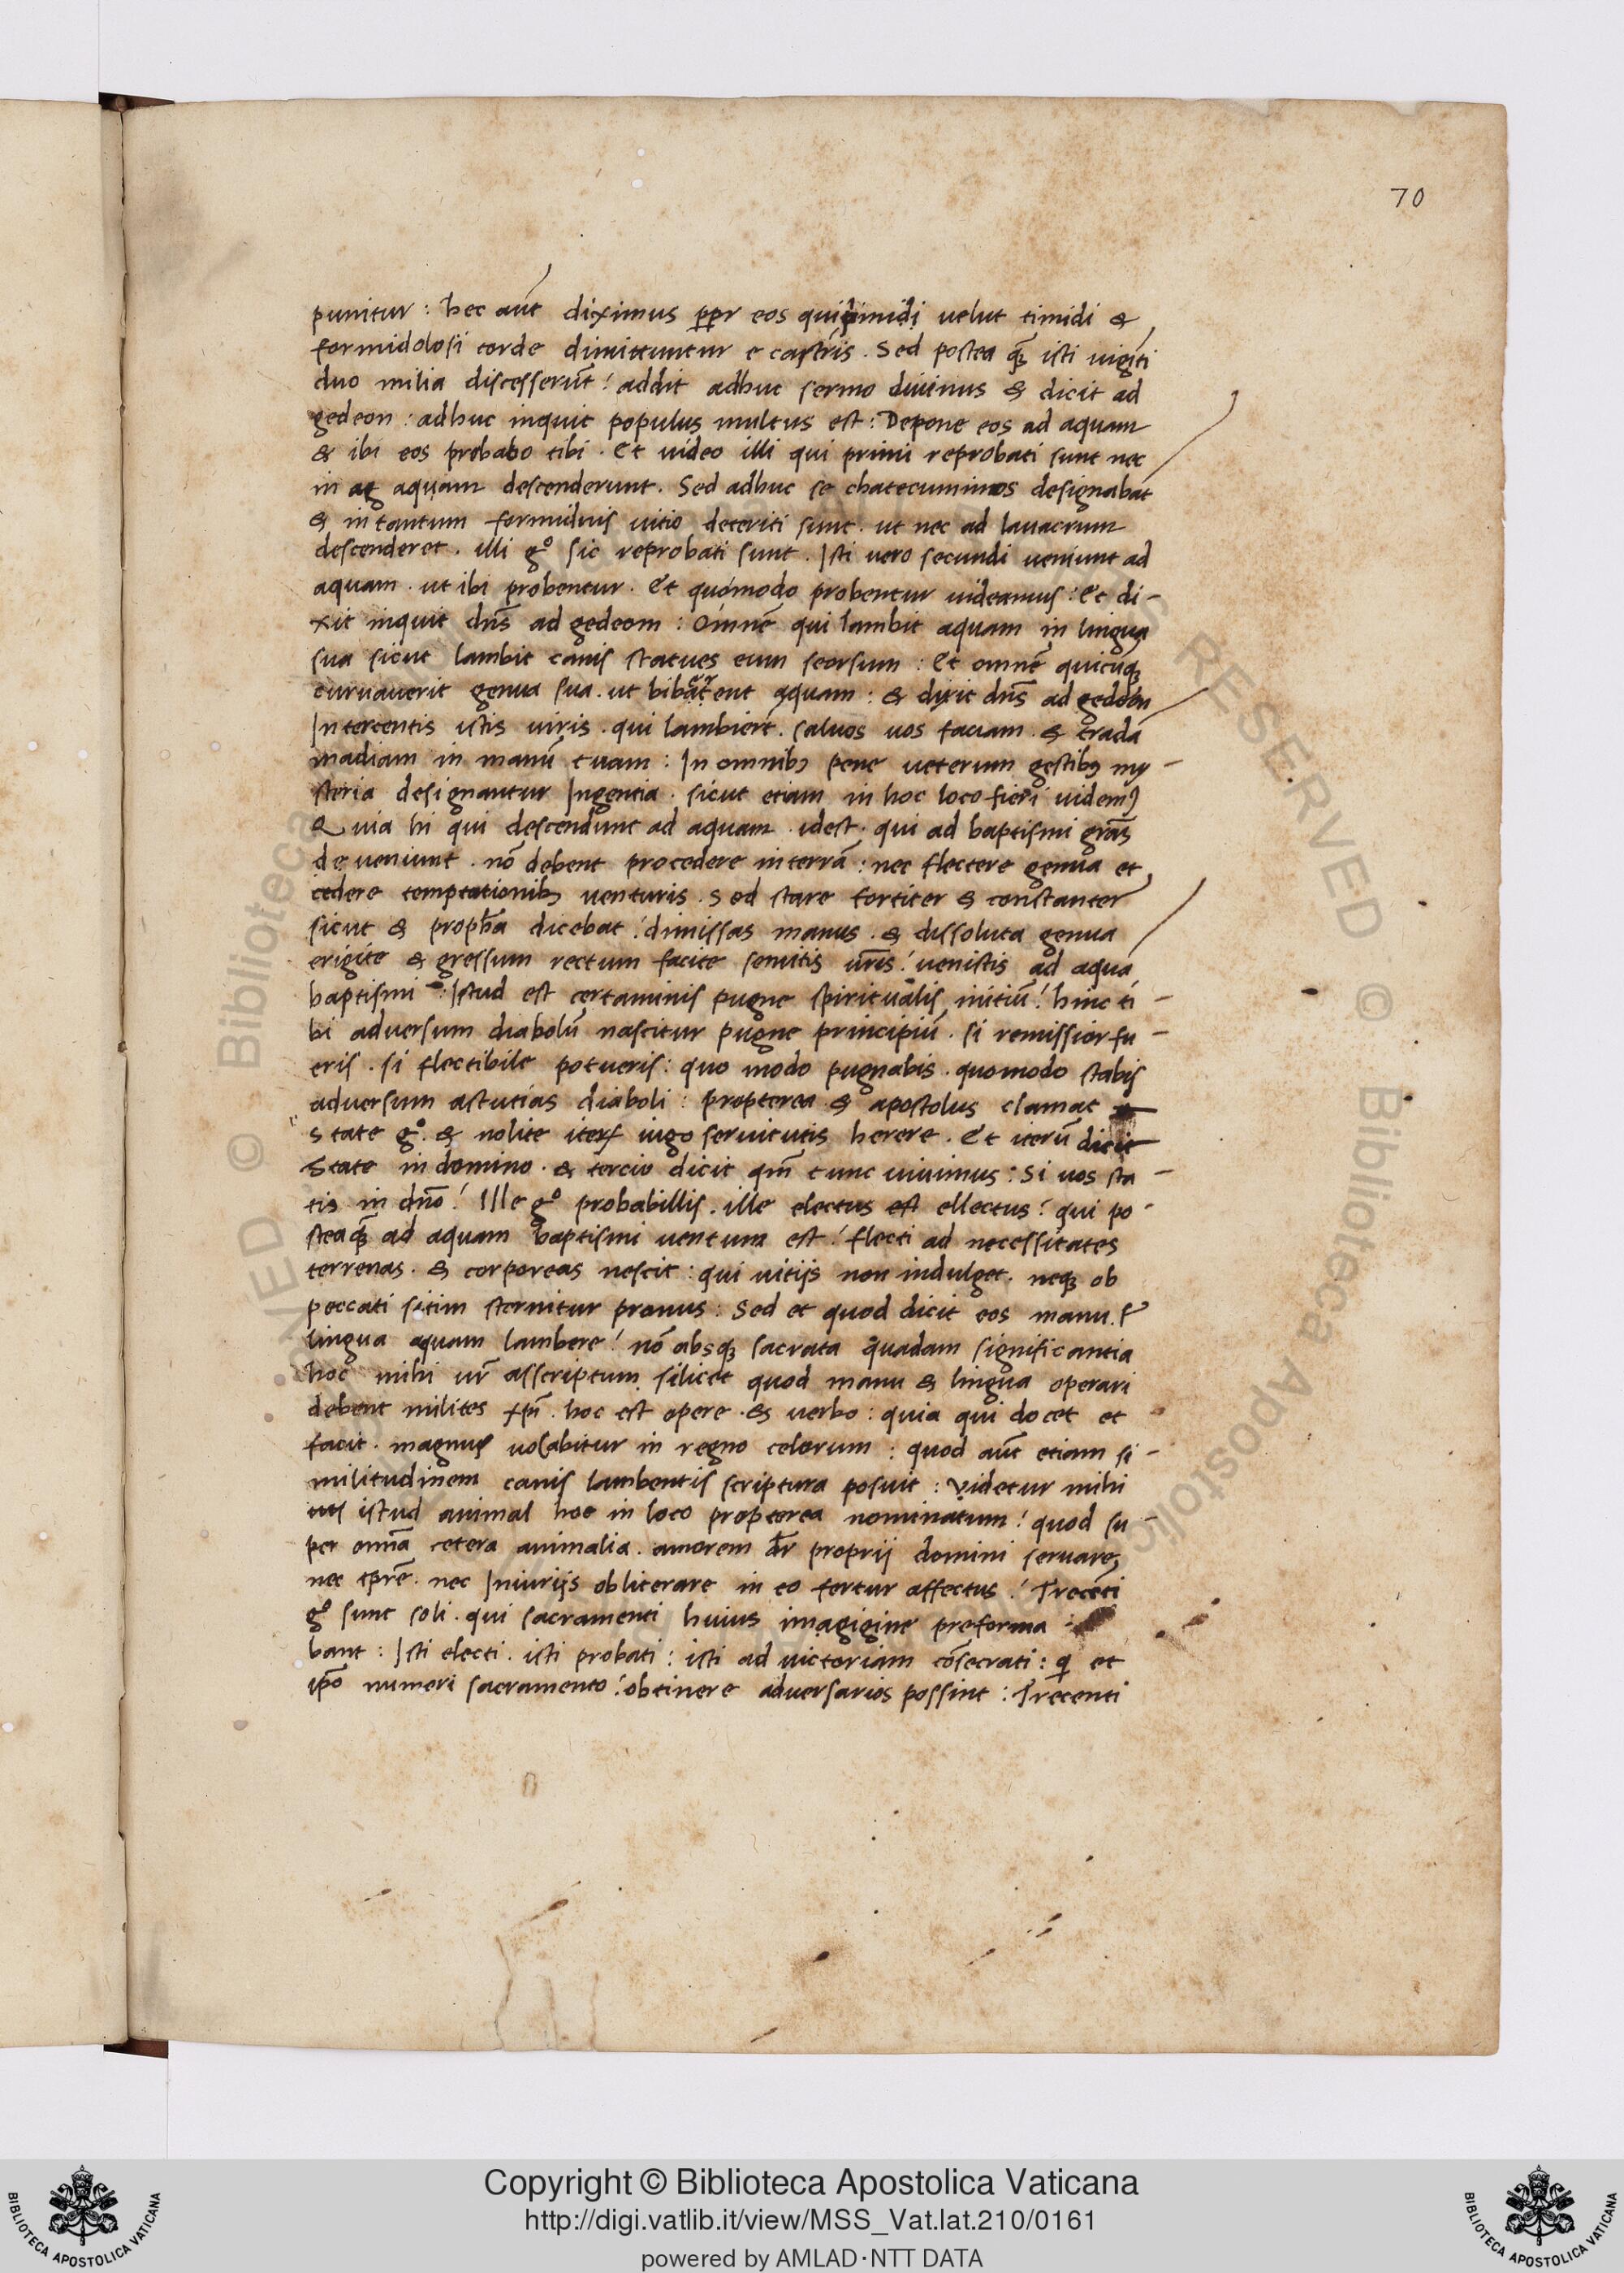 70
punitur : hec aūt diximus ꝓpr eos qui timidi uelut timidi &
formidolosi corde dimittuntur e castris . Sed postea qꝫ isti uigīti
duo milia discesserūt ! addit adhuc sermo diuinus & dicit ad
gedeon : adhuc inquit populus multus est : Depone eos ad aquam
& ibi eos probabo tibi . Et uideo illi qui primi reprobati sunt nec
in aq aquam descenderunt . Sed adhuc se chatecuminos designabāt
& in tantum formidinis uitio deteriti sunt . ut nec ad lauacrum
descenderet . illi gº sic reprobati sunt . Isti uero secundi ueniunt ad
aquam . ut ibi probentur . Et quomodo probentur uideamus : Et di-
xit inquit dn̄s ad gedeom : Omnē qui lambit aquam in lingua
sua sicut lambit canis statues eum seorsum : Et omnē quicūqꝫ
curuauerit genua sua . ut bibent aquam : & dixit dn̄s ad gedeon
In tercentis istis uiris . qui lambierēt . saluos uos faciam . & tradā
madiam in manū tuam : In omnibꝫ pene ueterum gestibꝫ my-
steria designantur Ingentia . sicut etiam in hoc loco fieri uidemꝰ
Quia hi qui descendunt ad aquam . idest . qui ad baptismi grās
de ueniunt . nō debent procedere in terrā : nec flectere genua et
cedere temptationibꝫ uenturis . Sed stare fortiter & constanter
sicut & propha dicebat ! dimissas manus . & dissoluta genua
erigite & gressum rectum facite semitis ur̄is ! uenistis ad aquā
baptismi : Istud est certaminis pugne spiritualis initiū ! hinc ti-
bi aduersum diabolū nascitur pugne principiū . si remissior fu-
eris . si flectibile potueris : quo modo pugnabis . quomodo stabis
aduersum astutias diaboli : propterea & apostolus clamat
state gº . & nolite iterꝝ iugo seruitutis herere . Et iterū dicit
State in domino . & tercio dicit qm̄ tunc uiuimus : Si uos sta-
tis in dn̄o ! Ille gº probabillis . ille electus est ellectus ! qui po-
steaqꝫ ad aquam baptismi uentum est ! flecti ad necessitates
terrenas . & corporeas nescit : qui uitijs non indulget . neqꝫ ob
peccati sitim sternitur pronus : Sed et quod dicit eos manu . &
lingua aquam lambere ! nō absqꝫ sacrata quadam significantia
hoc mihi ur̄ asscriptum . silicet quod manu & lingua operari
debent milites xp̄i . hoc est opere . & uerbo : quia qui docet et
facit . magnus uocabitur in regno celorum : quod aūt etiam si-
militudinem canis lambentis scriptura posuit : Videtur mihi
istud animal hoc in loco propterea nominatum ! quod su-
per omn̄a cetera animalia . amorem dr̄ proprij domini seruare,
nec tp̄re . nec Iniurijs obliterare in eo fertur affectus ! Trecēti
gº sunt soli . qui sacramenti huius imagigine preforma -
bant : Isti electi . isti probati : isti ad uictoriam cōsecrati : qi et
ip̄o numeri sacramento ! obtinere aduersarios possint : Trecenti
BIBLIOTECA APOSTOLICA VATICANA
Copyright © Biblioteca Apostolica Vaticana
http://digi.vatlib.it/view/MSS_Vat.lat.210/0161
powered by AMLAD·NTT DATA
BIBLIOTECA APOSTOLICA VATICANA